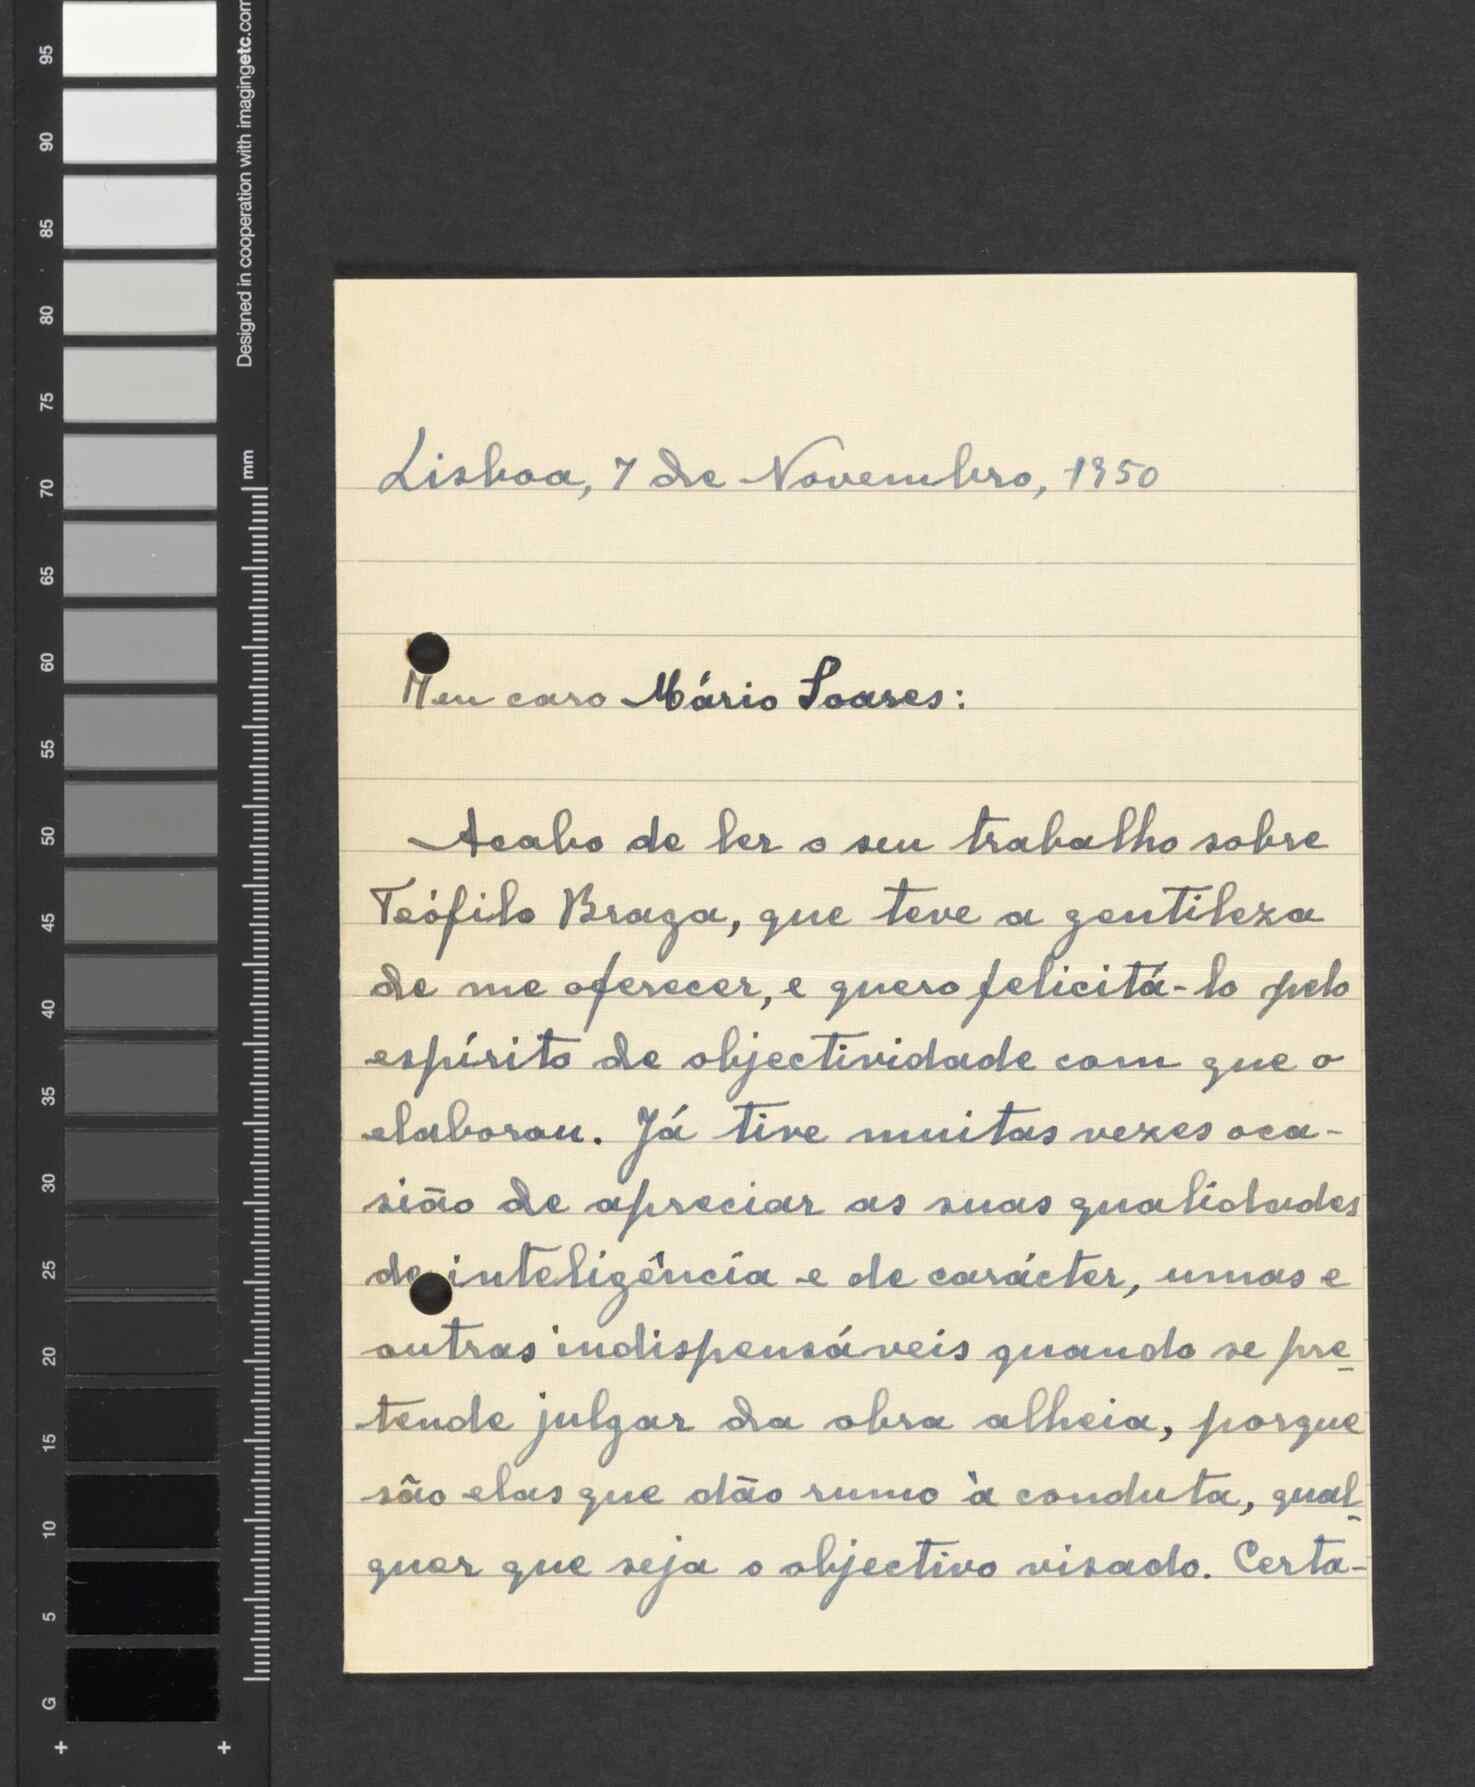 Lisboa, 7 de Novembro, 1950
Meu caro Mário Soares:
Acabo de ler o seu trabalho sobre
Teófilo Braga, que teve a gentileza
de me oferecer, e quero felicitá-lo pelo
espírito de objectividade com que o
elaborou. Já tive muitas vezes oca-
sião de apreciar as suas qualidades
de inteligência e de carácter, umas e
outras indispensáveis quando se pre-
tende julgar da obra alheia, porque
são elas que dão rumo à conduta, qual-
quer que seja o objectivo visado. Certa-
95
90
85
80
75
70
65
60
55
50
45
40
35
30
25
20
15
10
5
G
Designed in cooperation with imagingetc.com
mm